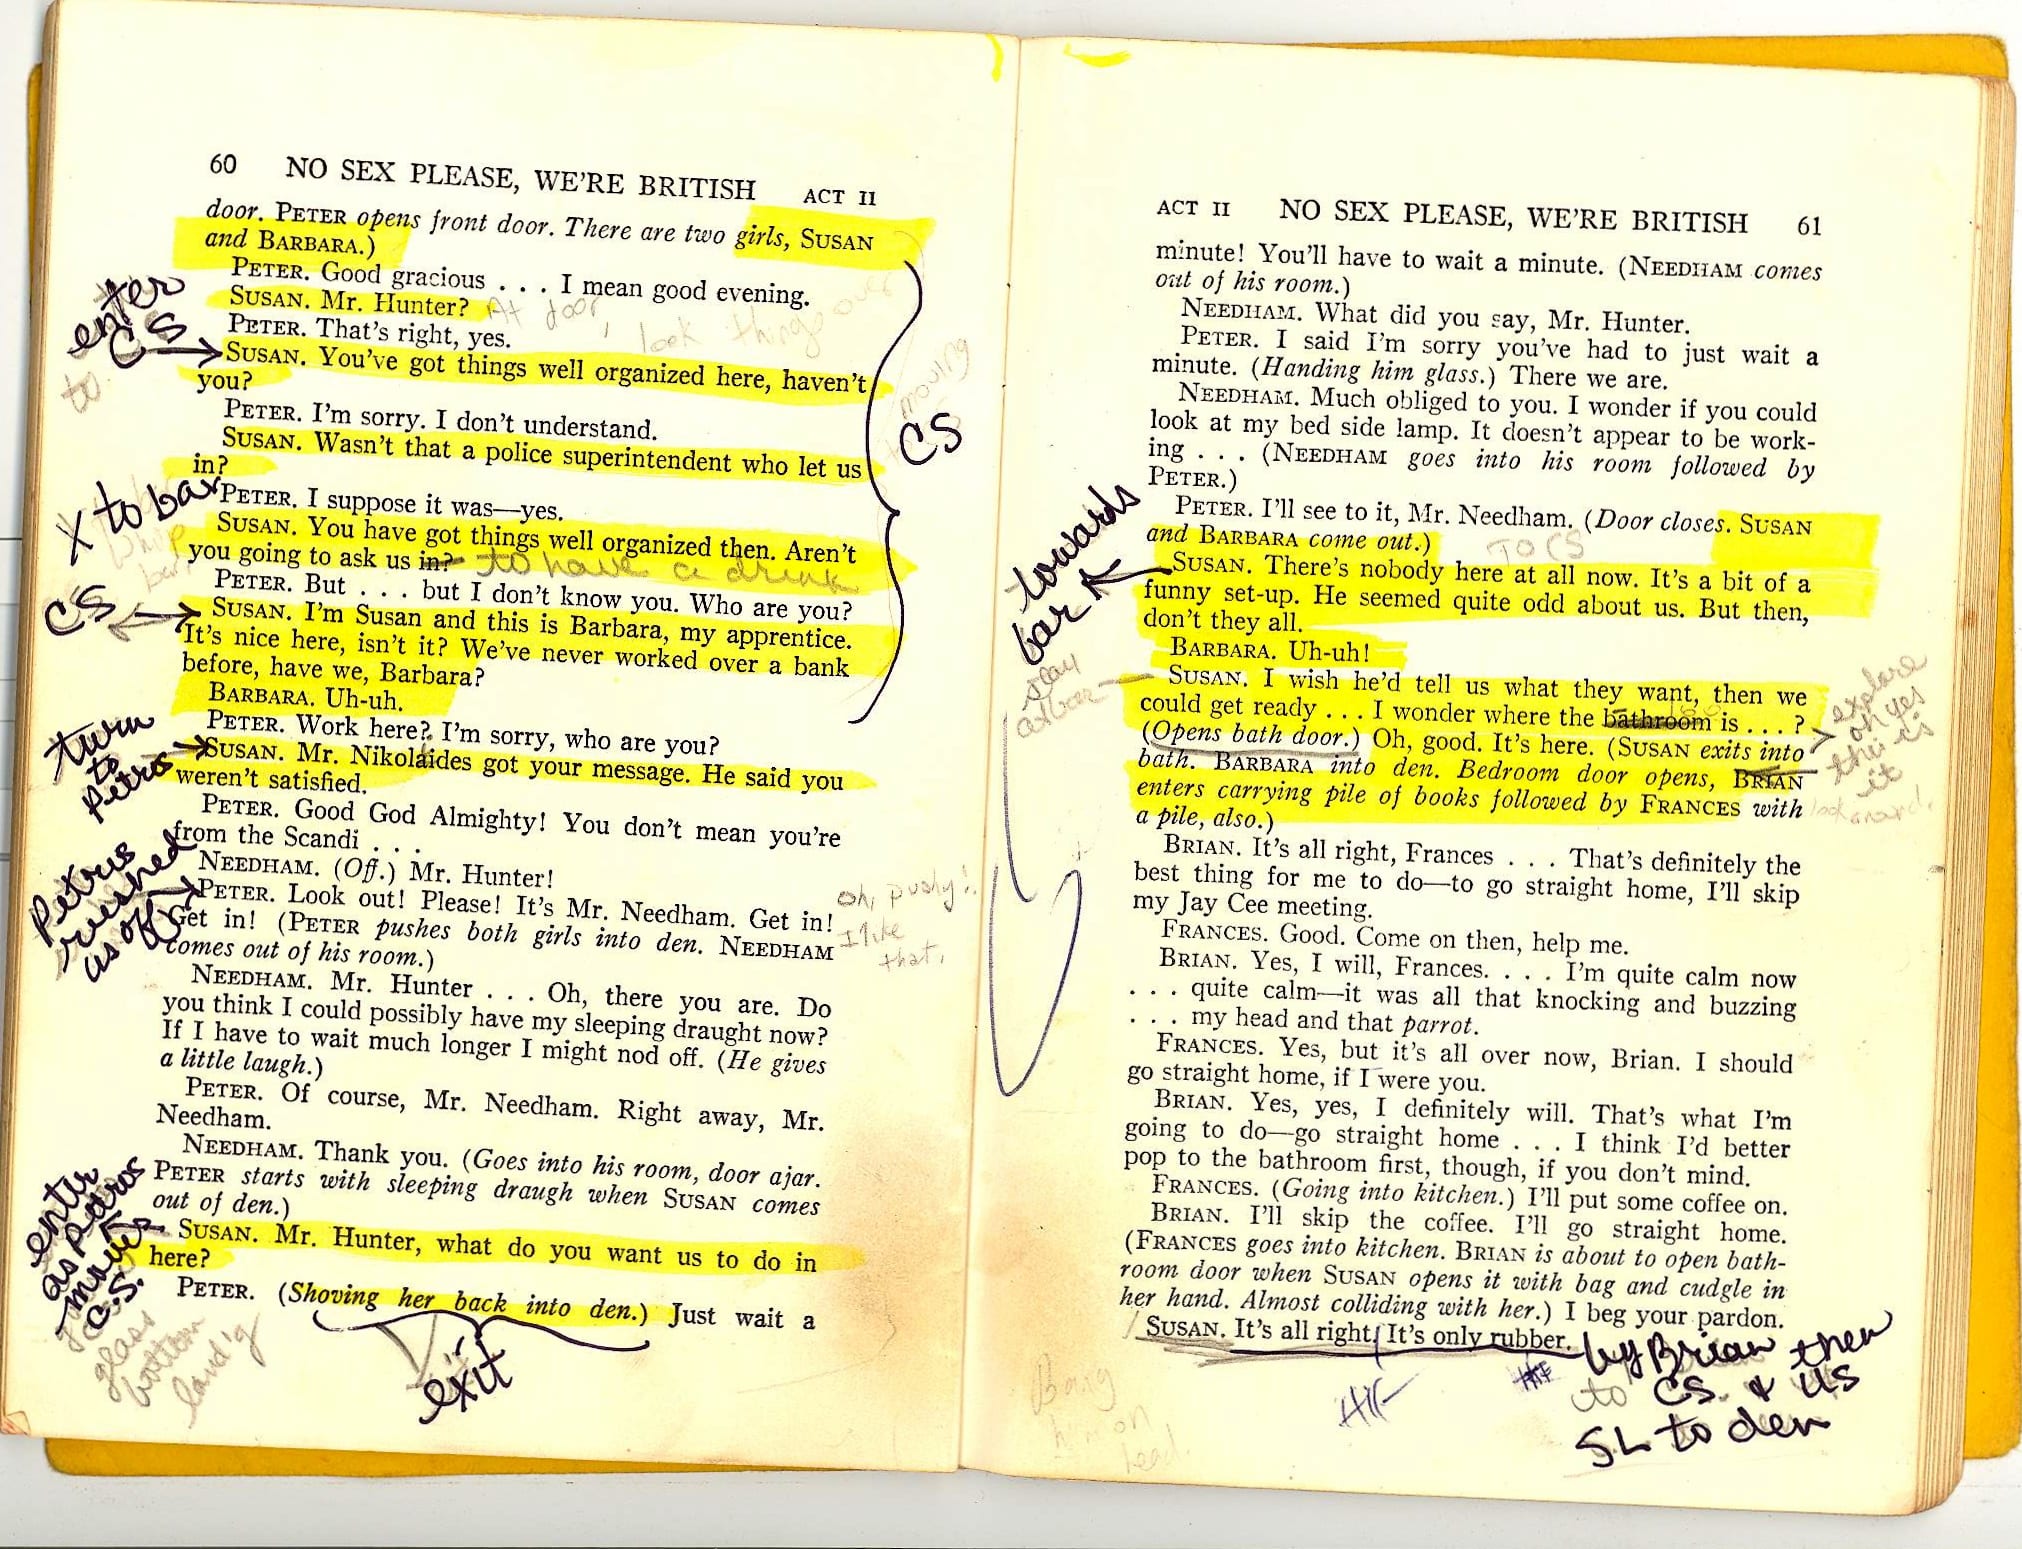 60 NO SEX PLEASE, WE'RE BRITISH ACT II
door. PETER opens front door. There are two girls, SUSAN
and BARBARA.)
PETER. Good gracious . . . I mean good evening.
SUSAN. Mr. Hunter? At door, look things over
PETER. That's right, yes.
enter
CS
to
SUSAN. You've got things well organized here, haven't
you?
moving
CS
PETER. I'm sorry. I don't understand.
SUSAN. Wasn't that a police superintendent who let us
in?
X to bar
PETER. I suppose it was—yes.
SUSAN. You have got things well organized then. Aren't
you going to ask us in? to have a drink
PETER. But . . . but I don't know you. Who are you?
CS
SUSAN. I'm Susan and this is Barbara, my apprentice.
It's nice here, isn't it? We've never worked over a bank
before, have we, Barbara?
BARBARA. Uh-uh.
PETER. Work here? I'm sorry, who are you?
turn
to
Petros
SUSAN. Mr. Nikolaides got your message. He said you
weren't satisfied.
PETER. Good God Almighty! You don't mean you're
from the Scandi . . .
NEEDHAM. (Off.) Mr. Hunter!
Petrus
rushed
us off
PETER. Look out! Please! It's Mr. Needham. Get in!
Get in! (PETER pushes both girls into den. NEEDHAM
comes out of his room.)
Oh, pushy!
I like
that.
NEEDHAM. Mr. Hunter . . . Oh, there you are. Do
you think I could possibly have my sleeping draught now?
If I have to wait much longer I might nod off. (He gives
a little laugh.)
PETER. Of course, Mr. Needham. Right away, Mr.
Needham.
NEEDHAM. Thank you. (Goes into his room, door ajar.
PETER starts with sleeping draugh when SUSAN comes
out of den.)
enter
as Petros
moves
C.S.
glass
bottom
land'g
SUSAN. Mr. Hunter, what do you want us to do in
here?
PETER. (Shoving her back into den.) Just wait a
exit
ACT II NO SEX PLEASE, WE'RE BRITISH 61
minute! You'll have to wait a minute. (NEEDHAM comes
out of his room.)
NEEDHAM. What did you say, Mr. Hunter.
PETER. I said I'm sorry you've had to just wait a
minute. (Handing him glass.) There we are.
NEEDHAM. Much obliged to you. I wonder if you could
look at my bed side lamp. It doesn't appear to be work-
ing . . . (NEEDHAM goes into his room followed by
PETER.)
PETER. I'll see to it, Mr. Needham. (Door closes. SUSAN
and BARBARA come out.) TO CS
towards
bar
SUSAN. There's nobody here at all now. It's a bit of a
funny set-up. He seemed quite odd about us. But then,
don't they all.
BARBARA. Uh-uh!
stay
at bar
SUSAN. I wish he'd tell us what they want, then we
could get ready . . . I wonder where the bathroom is . . . ?
(Opens bath door.) Oh, good. It's here. (SUSAN exits into
bath. BARBARA into den. Bedroom door opens, BRIAN
enters carrying pile of books followed by FRANCES with
a pile, also.)
explore
oh yes
this is
it
look around.
BRIAN. It's all right, Frances . . . That's definitely the
best thing for me to do—to go straight home, I'll skip
my Jay Cee meeting.
FRANCES. Good. Come on then, help me.
BRIAN. Yes, I will, Frances. . . . I'm quite calm now
. . . quite calm—it was all that knocking and buzzing
. . . my head and that parrot.
FRANCES. Yes, but it's all over now, Brian. I should
go straight home, if I were you.
BRIAN. Yes, yes, I definitely will. That's what I'm
going to do—go straight home . . . I think I'd better
pop to the bathroom first, though, if you don't mind.
FRANCES. (Going into kitchen.) I'll put some coffee on.
BRIAN. I'll skip the coffee. I'll go straight home.
(FRANCES goes into kitchen. BRIAN is about to open bath-
room door when SUSAN opens it with bag and cudgle in
her hand. Almost colliding with her.) I beg your pardon.
SUSAN. It's all right. It's only rubber.
by Brian then
to CS. & US
SL to den
Bang
him on
head.